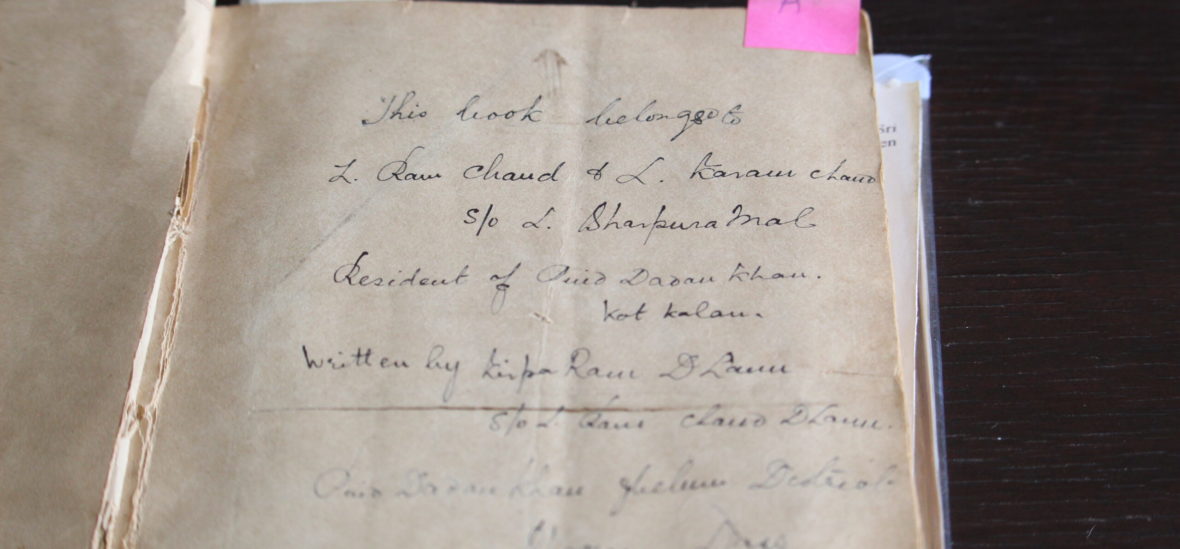 A
This book belongs to
L. Ram Chand & L. Karam Chand
S/o L. Bharpura Mal
Resident of Pind Dadan Khan.
Kot Kalan.
Written by Kirpa Ram Dhamm
S/o L. Ram Chand Dhamm.
Pind Dadan Khan Jhelum District
Sri
en